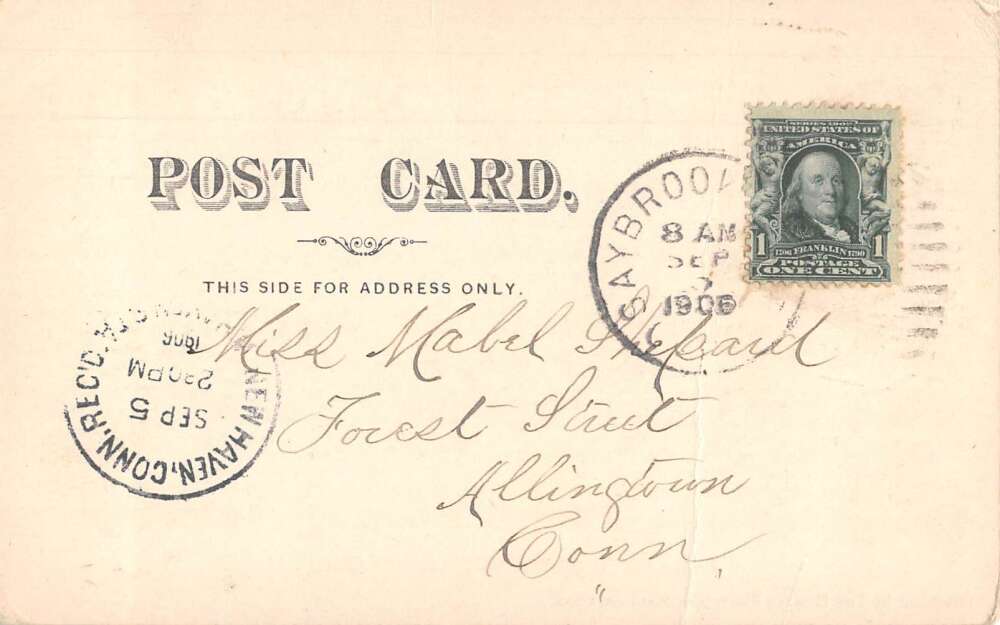 POST CARD.
THIS SIDE FOR ADDRESS ONLY.
SERIES 1902
UNITED STATES OF
AMERICA
1 FRANKLIN 1
1706 1790
POSTAGE
ONE CENT
SAYBROOK
8 AM
SEP
1906
NEW HAVEN, CONN. REC'D.
SEP 5
230PM
1906
Miss Mabel Shepard
Forest Street
Allingtown
Conn